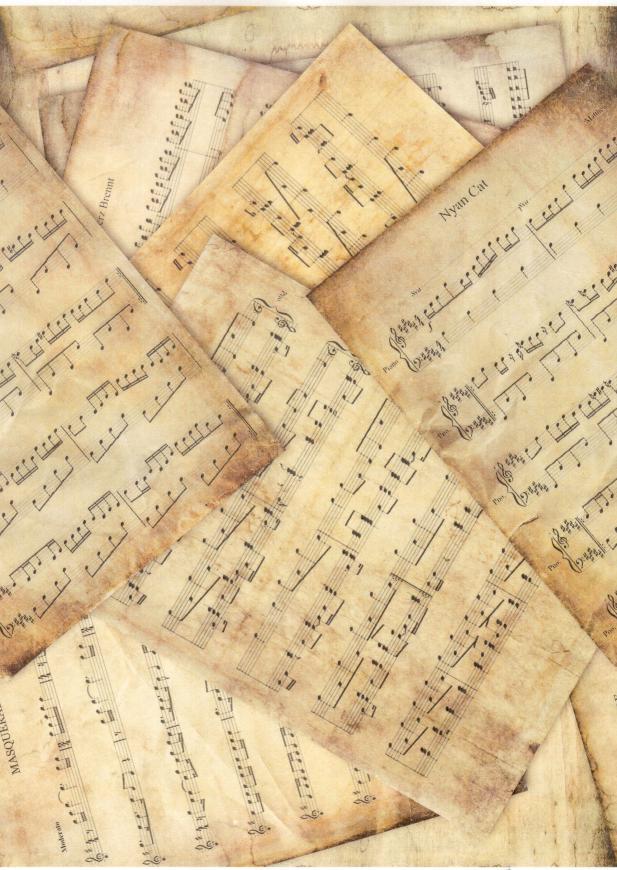 rz Brennt
Nyan Cat
8va
8va
Piano
Pno.
Pno.
Pno.
Pno.
Pno.
MASQUERA
Moderato